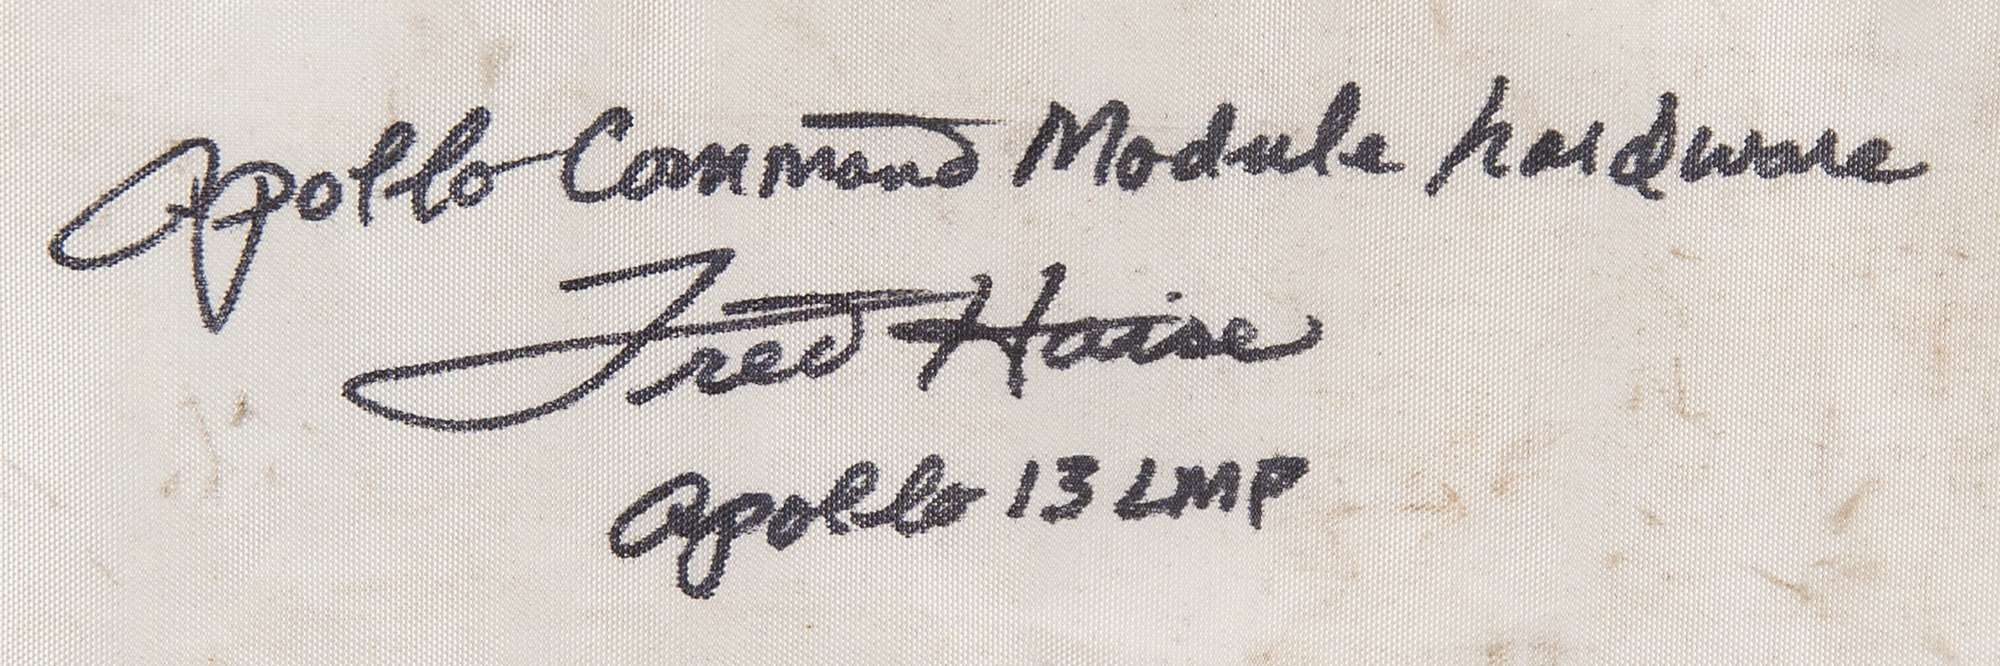 Apollo Command Module hardware
Fred Haise
Apollo 13 LMP